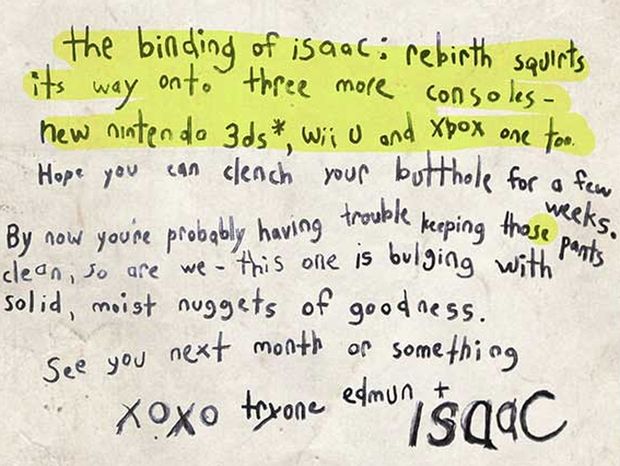 the binding of isaac: rebirth squirts
its way onto three more consoles-
new nintendo 3ds*, wii u and xbox one too.
Hope you can clench your butthole for a few weeks.
By now you're probably having trouble keeping those pants
clean, so are we - this one is bulging with
solid, moist nuggets of goodness.
See you next month or something
xoxo tryone edmun + isaac